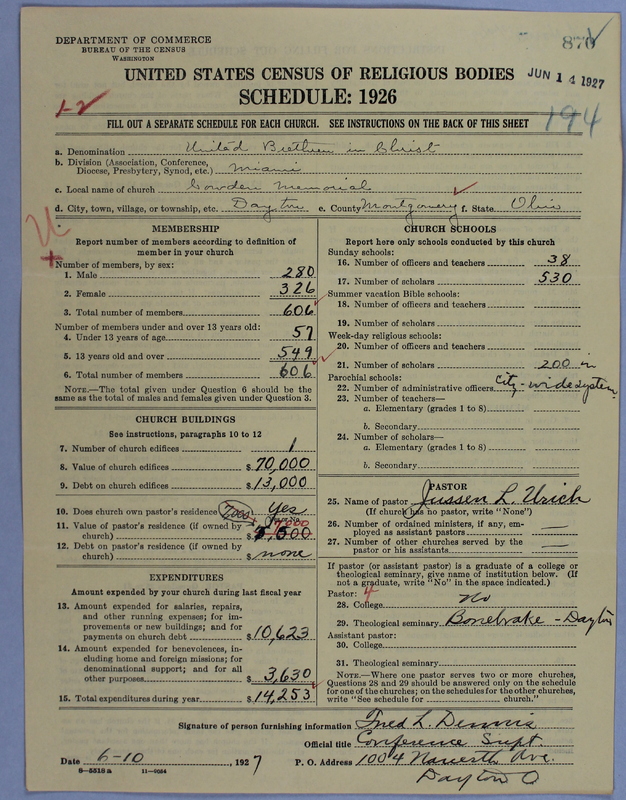 DEPARTMENT OF COMMERCE
BUREAU OF THE CENSUS
WASHINGTON
876
UNITED STATES CENSUS OF RELIGIOUS BODIES
JUN 14 1927
SCHEDULE: 1926
1-2
194
FILL OUT A SEPARATE SCHEDULE FOR EACH CHURCH. SEE INSTRUCTIONS ON THE BACK OF THIS SHEET
a. Denomination United Brethren in Christ
b. Division (Association, Conference, Diocese, Presbytery, Synod, etc.) Miami
c. Local name of church Memorial
d. City, town, village, or township, etc. Dayton e. County Montgomery f. State Ohio
U.
MEMBERSHIP
Report number of members according to definition of
member in your church
Number of members, by sex:
1. Male 280
2. Female 326
3. Total number of members 606
Number of members under and over 13 years old:
4. Under 13 years of age 57
5. 13 years old and over 549
6. Total number of members 606
NOTE.—The total given under Question 6 should be
same as the total of males and females given under Question 3.
CHURCH BUILDINGS
See instructions, paragraphs 10 to 12
7. Number of church edifices 1
8. Value of church edifices $ 70,000
9. Debt on church edifices $ 13,000
10. Does church own pastor's residence? Yes
11. Value of pastor's residence (if owned by
church) $
12. Debt on pastor's residence (if owned by
church) $ none
EXPENDITURES
Amount expended by your church during last fiscal year
13. Amount expended for salaries, repairs,
and other running expenses; for im-
provements or new buildings; and for
payments on church debt $ 10,623
14. Amount expended for benevolences, in-
cluding home and foreign missions; for
denominational support; and for all
other purposes $ 3,630
15. Total expenditures during year $ 14,253
CHURCH SCHOOLS
Report here only schools conducted by this church
Sunday schools:
16. Number of officers and teachers 38
17. Number of scholars 530
Summer vacation Bible schools:
18. Number of officers and teachers
19. Number of scholars
Week-day religious schools:
20. Number of officers and teachers
21. Number of scholars 200 in
Parochial schools:
22. Number of administrative officers City-wide system
23. Number of teachers—
a. Elementary (grades 1 to 8)
b. Secondary
24. Number of scholars—
a. Elementary (grades 1 to 8)
b. Secondary
PASTOR
25. Name of pastor L. Urich
(If church has no pastor, write "None")
26. Number of ordained ministers, if any, em-
ployed as assistant pastors —
27. Number of other churches served by the
pastor or his assistants —
If pastor (or assistant pastor) is a graduate of a college or
theological seminary, give name of institution below. (If
not a graduate, write "No" in the space indicated.)
Pastor: 4
28. College no
29. Theological seminary Bonebrake - Dayton
Assistant pastor:
30. College
31. Theological seminary
NOTE.—Where one pastor serves two or more churches,
Questions 28 and 29 should be answered only on the schedule
for one of the churches; on the schedules for the other churches,
write "See schedule for church."
Signature of person furnishing information Fred L. Dennis
Official title Conference Supt.
Date 6-10, 1927 P. O. Address 1004 Ave.
Dayton O
8—5518a 11—9054